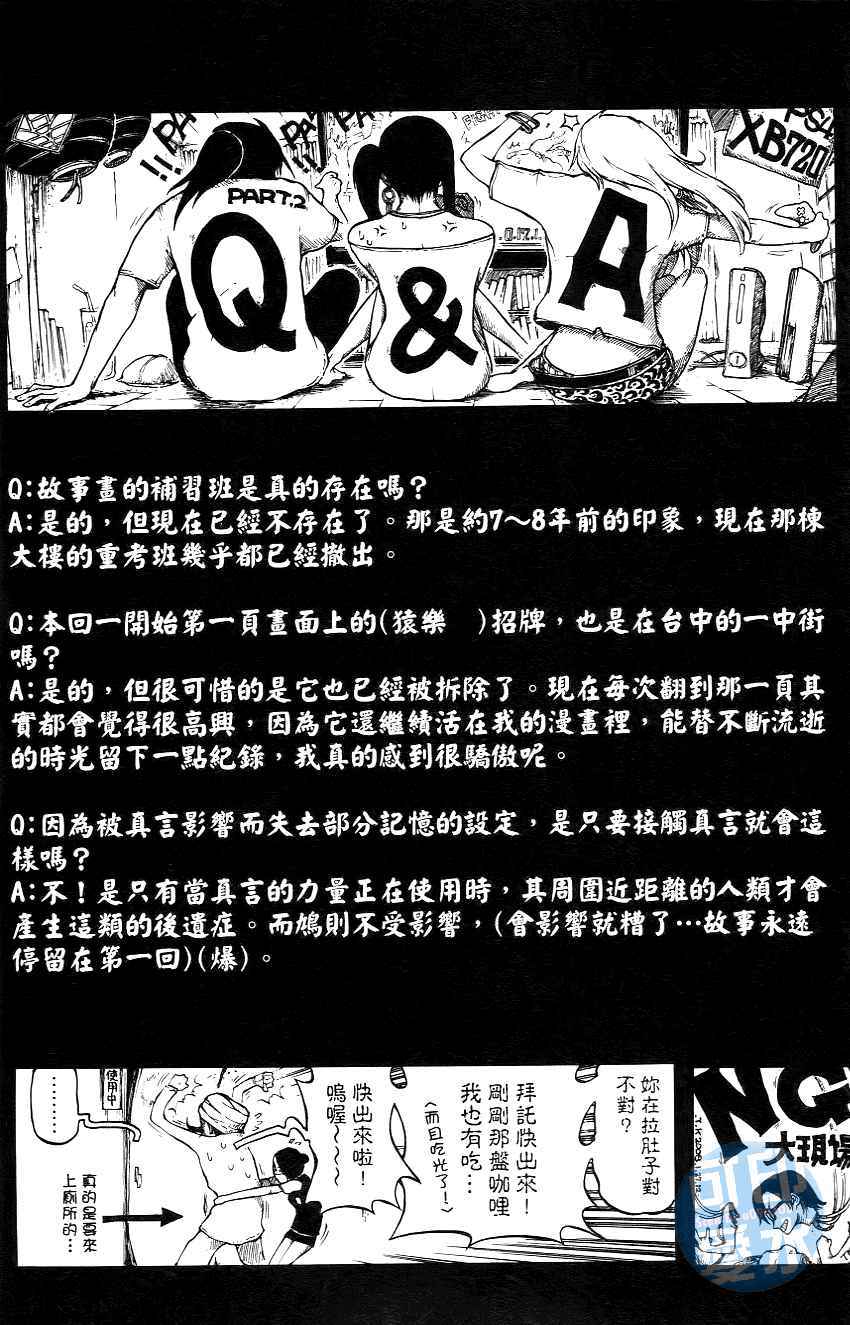 PA
PA
PA
PA
!!
!!
PS4
XB720
PART.2
Q & A
Q:故事畫的補習班是真的存在嗎？
A:是的，但現在已經不存在了。那是約7～8年前的印象，現在那棟
大樓的重考班幾乎都已經撤出。
Q:本回一開始第一頁畫面上的(猿樂　)招牌，也是在台中的一中街
嗎？
A:是的，但很可惜的是它也已經被拆除了。現在每次翻到那一頁其
實都會覺得很高興，因為它還繼續活在我的漫畫裡，能替不斷流逝
的時光留下一點紀錄，我真的感到很驕傲呢。
Q:因為被真言影響而失去部分記憶的設定，是只要接觸真言就會這
樣嗎？
A:不！是只有當真言的力量正在使用時，其周圍近距離的人類才會
產生這類的後遺症。而鳩則不受影響，(會影響就糟了…故事永遠
停留在第一回)(爆)。
NG
大現場
妳在拉肚子對
不對？
拜託快出來！
剛剛那盤咖哩
我也有吃…
（而且吃光了！）
快出來啦！
嗚喔～～～
使用中
………
真的是要來
上廁所的…